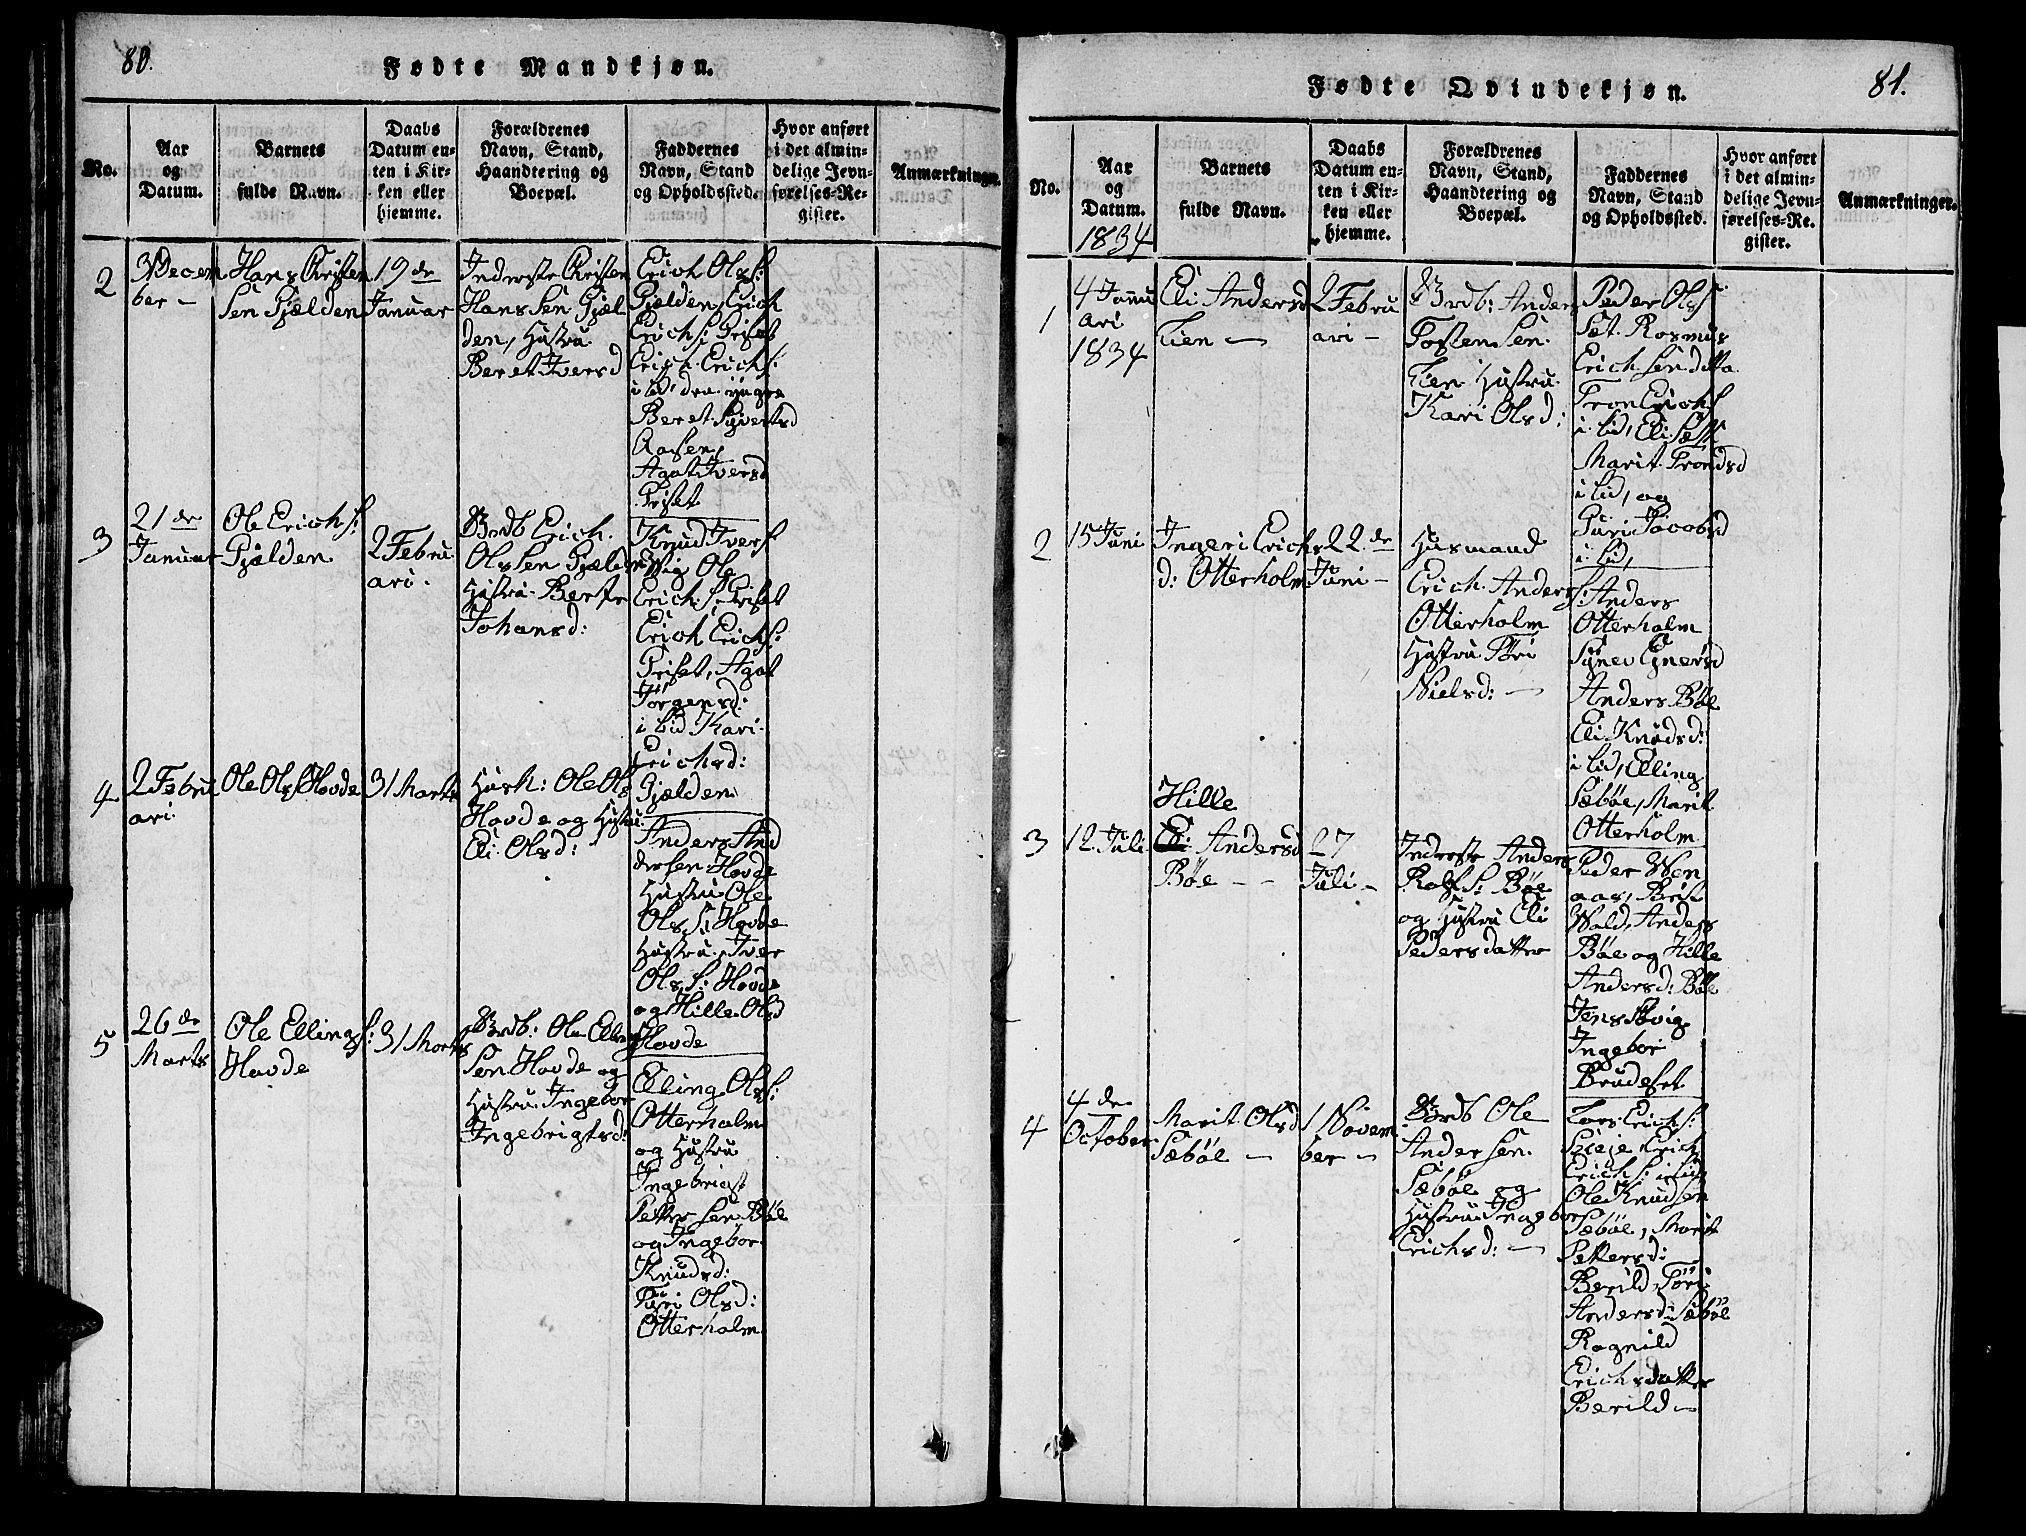 80.
Fødte Mandkjøn.
No.
Aar
og
Datum.
Barnets
fulde Navn.
Daabs
Datum en-
ten i Kir-
ken eller
hjemme.
Forældrenes
Navn, Stand,
Haandtering og
Boepæl.
Faddernes
Navn, Stand
og Opholdssted.
Hvor anført
i det almin-
delige Jevn-
førelses-Re-
gister.
Anmærkninger.
2
3 Decem
ber -
Hans Christen
Sen Gjelden
19 de
Januar
Inderste Christen
Hans Sen Gjel
den, Hustru
Beret Iversd
Erich Ols:
Gjelden, Erich
Erich s: Griset
Erich Erich s:
i Lid, den yngre
Beret Syvertsd
Aasen,
Agat Iversd
Griset
3
21 de
Januar
Ole Erich s:
Gjelden
2 Febru
ari.
Brdb Erich
Ols Sen Gjelden
Hustru Berte
Johansd:
Knud Ivers
Wig Ole
Erich s. Griset
Erich Erichs:
Griset, Agat
Jörgensd:
i Lid Kari
Erichsd:
Gjelden
4
2 Febru
ari
Ole Ols Hovde
31 Marts
Husm: Ole Ols
Hovde og Hustru
Eli Olsd:
Anders And
ersen Hovde
Hustru Ole
Ols S: Hovde
Hustru, Iver
Ols S: Hovde
og Hille Olsd
Hovde
5
26 de
Marts
Ole Ellings:
Hovde
31 Marts
Brdb: Ole Elling
Sen Hovde og
Hustru Ingebor
Ingebrigtsd:
Elling Ols:
Otterholm
og Hustru
Ingebrigt
Petter Sen Böe
og Ingebor
Knudsd:
Turi Olsd:
Otterholm
81.
Fødte Qvindekjøn.
No.
Aar
og
Datum.
1834
Barnets
fulde Navn.
Daabs
Datum en-
ten i Kir-
ken eller
hjemme.
Forældrenes
Navn, Stand,
Haandtering og
Boepæl.
Faddernes
Navn, Stand
og Opholdssted.
Hvor anført
i det almin-
delige Jevn-
førelses-Re-
gister.
Anmærkninger.
1
4 Janu
ari
1834
Eli Andersd
Lien -
2 Febru
ari -
Brdb: Anders
Tosten Sen
Lien Hustru
Kari Olsd:
Peder Ols
Sæt. Rasmus
Erich Sen ditto
Tron Erich S
i Lid, Eli
Marit Trondsd
i Lid, og
Guri Jacobsd
i Lid,
2
15 Juni
Ingeri Erichs
d: Otterholm
22 de
Juni -
Husmand
Erich Anders s:
Otterholm
Hustru
Nielsd: -
Anders
Otterholm
Synev Ejnersd
Anders Böe
Eli Knudsd:
i Lid, Elling
Sæböe, Marit
Otterholm
3
12 Juli
Hille
Eli Andersd
Böe - -
27
Juli -
Inderste Anders
Rolf S: Böe
og Hustru Eli
Pedersdatter
Peder Wen
aas,
Wold, Anders
Böe og Hille
Andersd: Böe
Jens
Ingebor
Brudeset
4
4 de
October
Marit Olsd
Sæböe -
1 Novem
ber -
Brdb Ole
Ander Sen
Sæböe og
Hustru Ingebor
Erichsd: -
Lars Erich s:
Erich
Erich S: i Lid
Ole Knudsen
Sæböe, Marit
Pettersd:
Berild, Töri
Andersd: Sæböe
Ragnild
Erichsdatter
Berild -